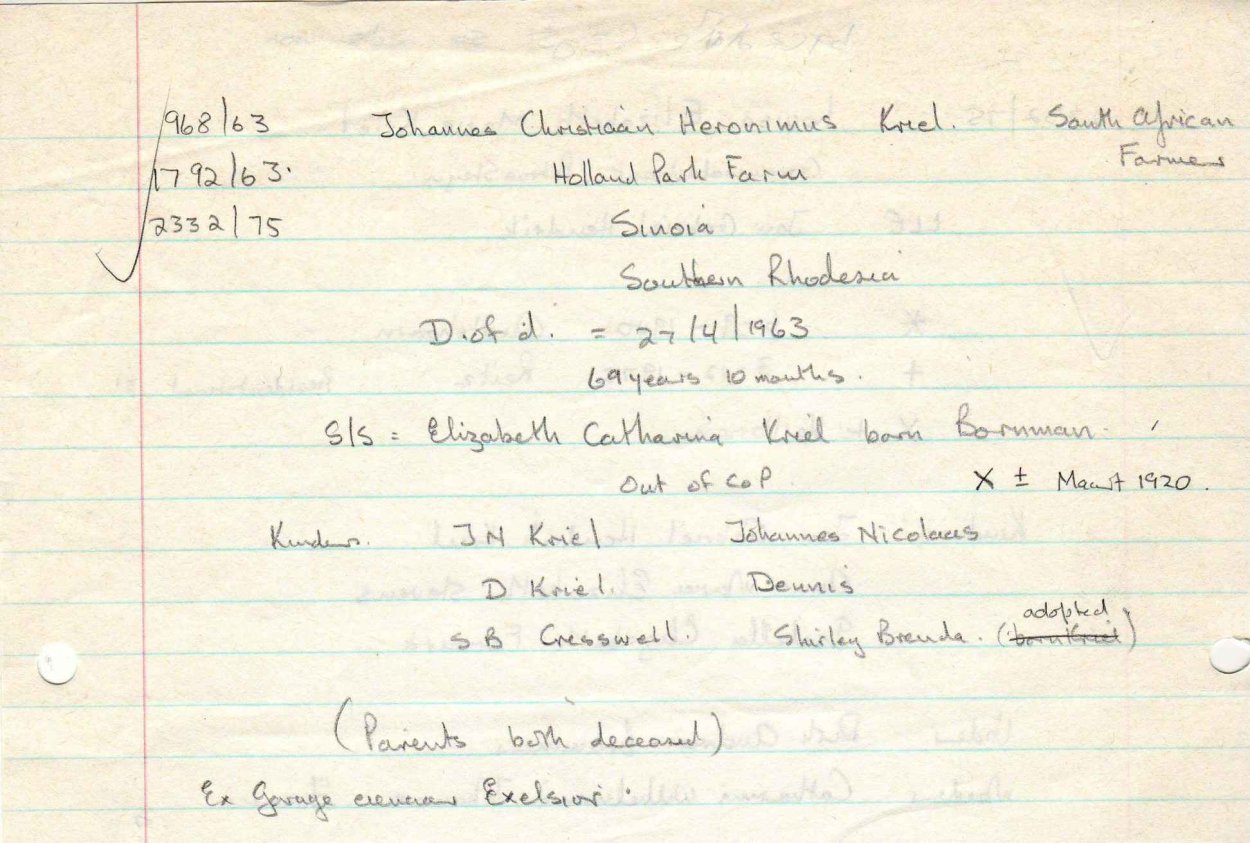 968/63 Johannes Christiaan Heronimus Kriel. South African
Farmer
1792/63. Holland Park Farm
2332/75 Sinoia
Southern Rhodesia
D. of d. = 27/4/1963
69 years 10 months.
S/S = Elizabeth Catharina Kriel born Bornman.
Out of CoP. X ± Maart 1920.
Kinders. J N Kriel Johannes Nicolaas
D Kriel. Dennis
adopted
S B Cresswell. Shirley Brenda. (born Kriel)
(Parents both deceased)
Ex Garage eienaar Exelsior.